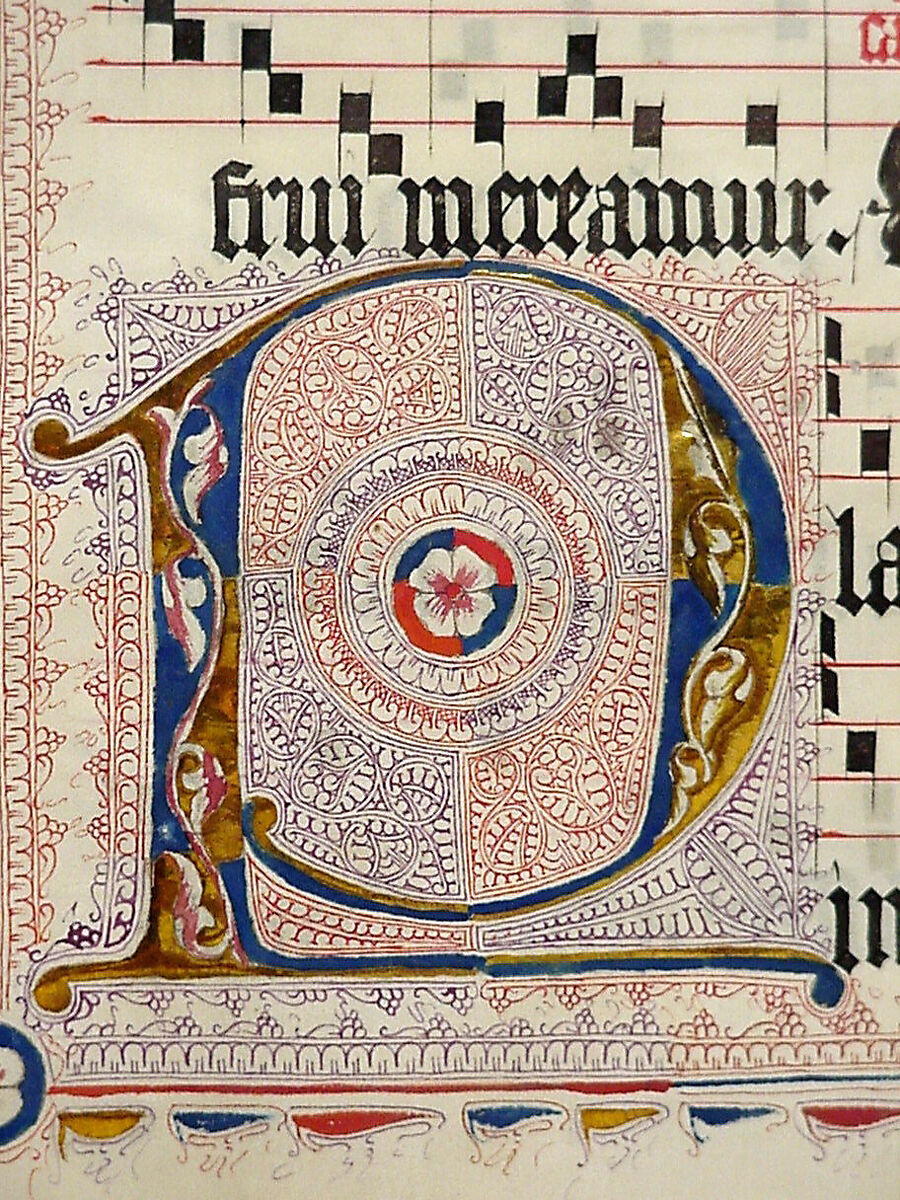 frui mereamur.
P
la
in